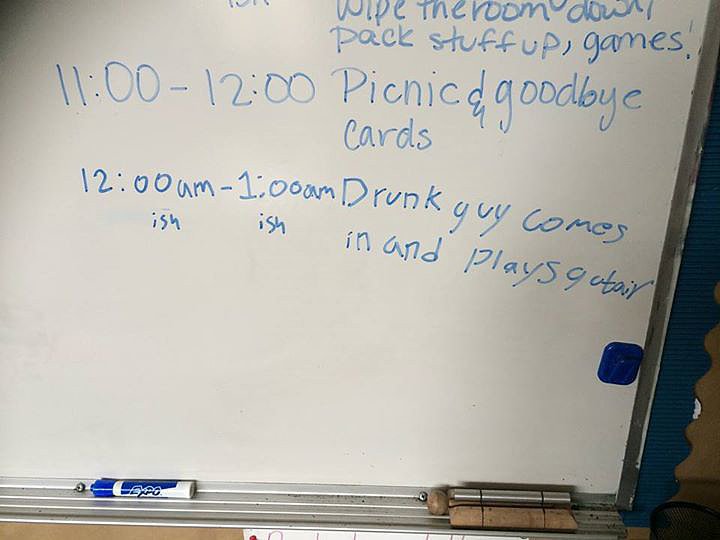 ish
wipe the room down,
pack stuff up, games!
11:00 - 12:00 Picnic & goodbye
cards
12:00am - 1:00am Drunk guy comes
ish ish in and plays gutair
EXPO